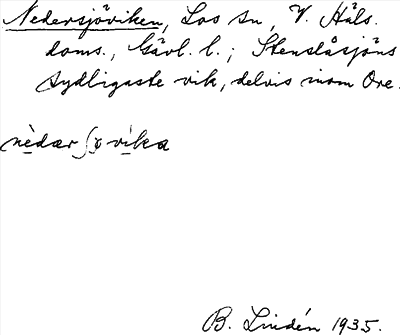 Nedersjöviken, Los sn, V. Häls.
doms., Gävl. l.; Stenslåsjöns
sydligaste vik, delvis inom Ore.
nèdærʃɤvika
B. Lindén 1935.